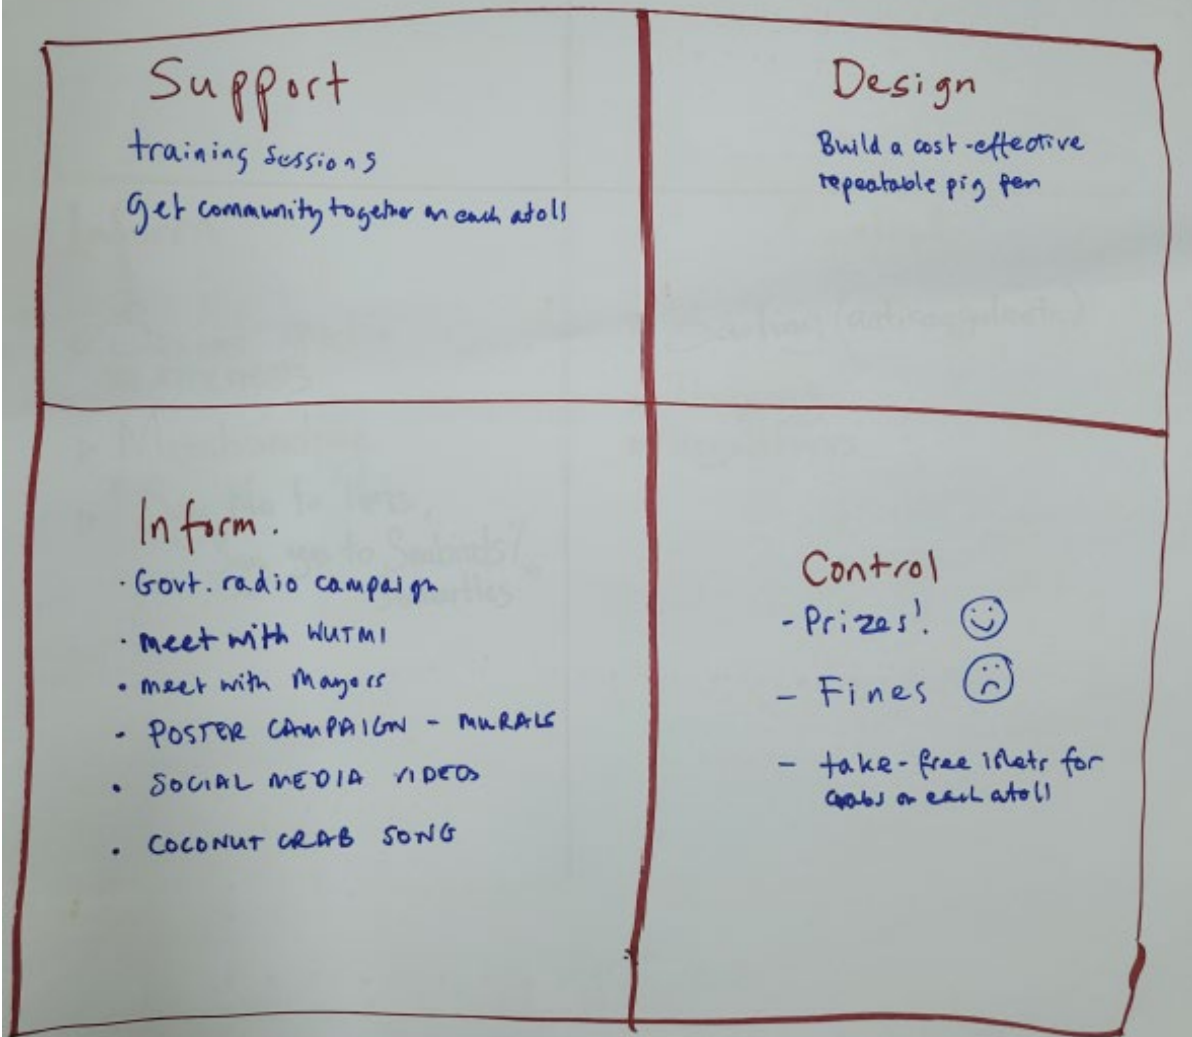 Support
training sessions
Get community together on each atoll
Design
Build a cost-effective
repeatable pig pen
Inform.
· Govt. radio campaign
· meet with WUTMI
· meet with Mayors
· POSTER CAMPAIGN - MURALS
· SOCIAL MEDIA VIDEOS
· COCONUT CRAB SONG
Control
- Prizes!
- Fines
- take-free islets for
crabs on each atoll